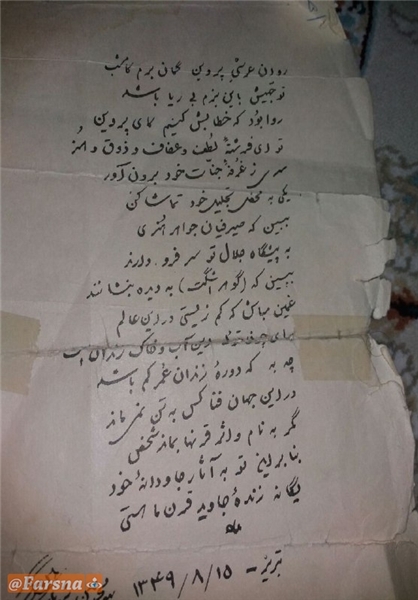 روان عرشی پروین گمان برم کامشب
توجهش باین بزم بی ریا باشد
روا بود که خطابش کنیم کای پروین
تو ای فرشتهٔ لطف و عفاف و ذوق و هنر
سری ز غرفهٔ جنات خود برون آور
یکی به محفل تجلیل خود تماشا کن
ببین که صیرفیان جواهر هنری
به پیشگاه جلال تو سر فرود آرند
ببین که (گوهر اشکت) به دیده بنشانند
غمین مباش که کم زیستی در این عالم
برای چون تو این آب و خاک زندان است
چه به که دورهٔ زندان عمر کم باشد
در این جهان فنا کس به تن نمی ماند
مگر به نام و اثر قرنها بماند شخص
بنا براین تو به آثار جاودانهٔ خود
یگانه زندهٔ جاوید قرن ما هستی
تبریز - ۱۳۴۹/۸/۱۵
@Farsna